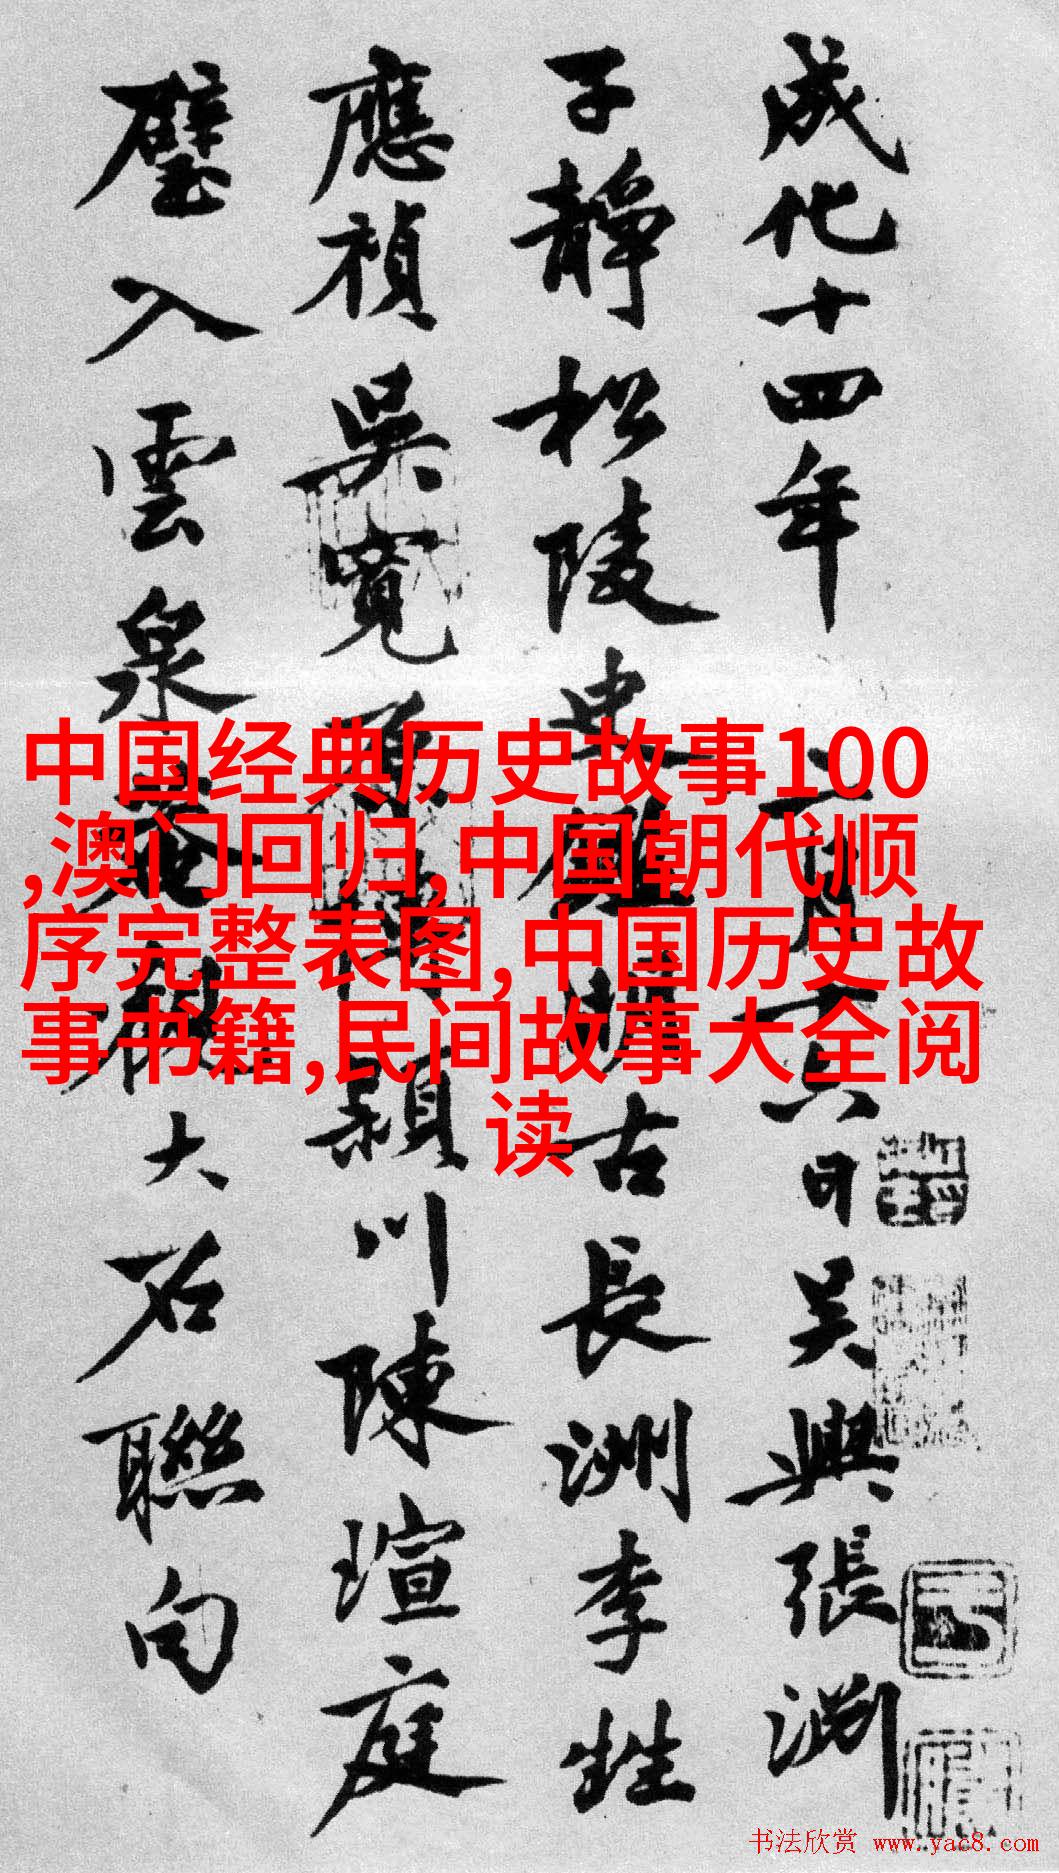 成化十四年二月十六日吴興張渊
子靜松陵史鑑明古長洲李甡
應禎吳寬原博潁川陳瑄庭
璧入雲泉菴觀大石聯句
中国经典历史故事100
,澳门回归,中国朝代顺
序完整表图,中国历史故
事书籍,民间故事大全阅
读
书法欣赏 www.yac8.com